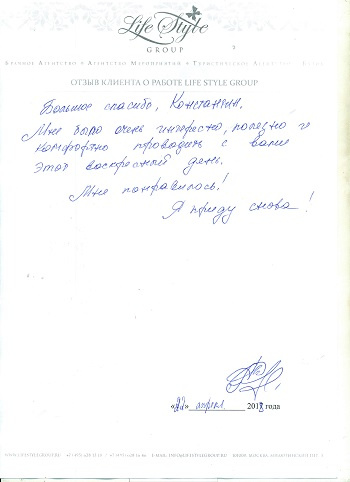 Life Style
GROUP
Брачное Агентство • Агентство Мероприятий • Туристическое
ОТЗЫВ КЛИЕНТА О РАБОТЕ LIFE STYLE GROUP
Большое спасибо, Константин.
Мне было очень интересно, полезно и
комфортно проводить с вами
этот воскресный день.
Мне понравилось!
Я приду снова!
«22» апреля 2018 года